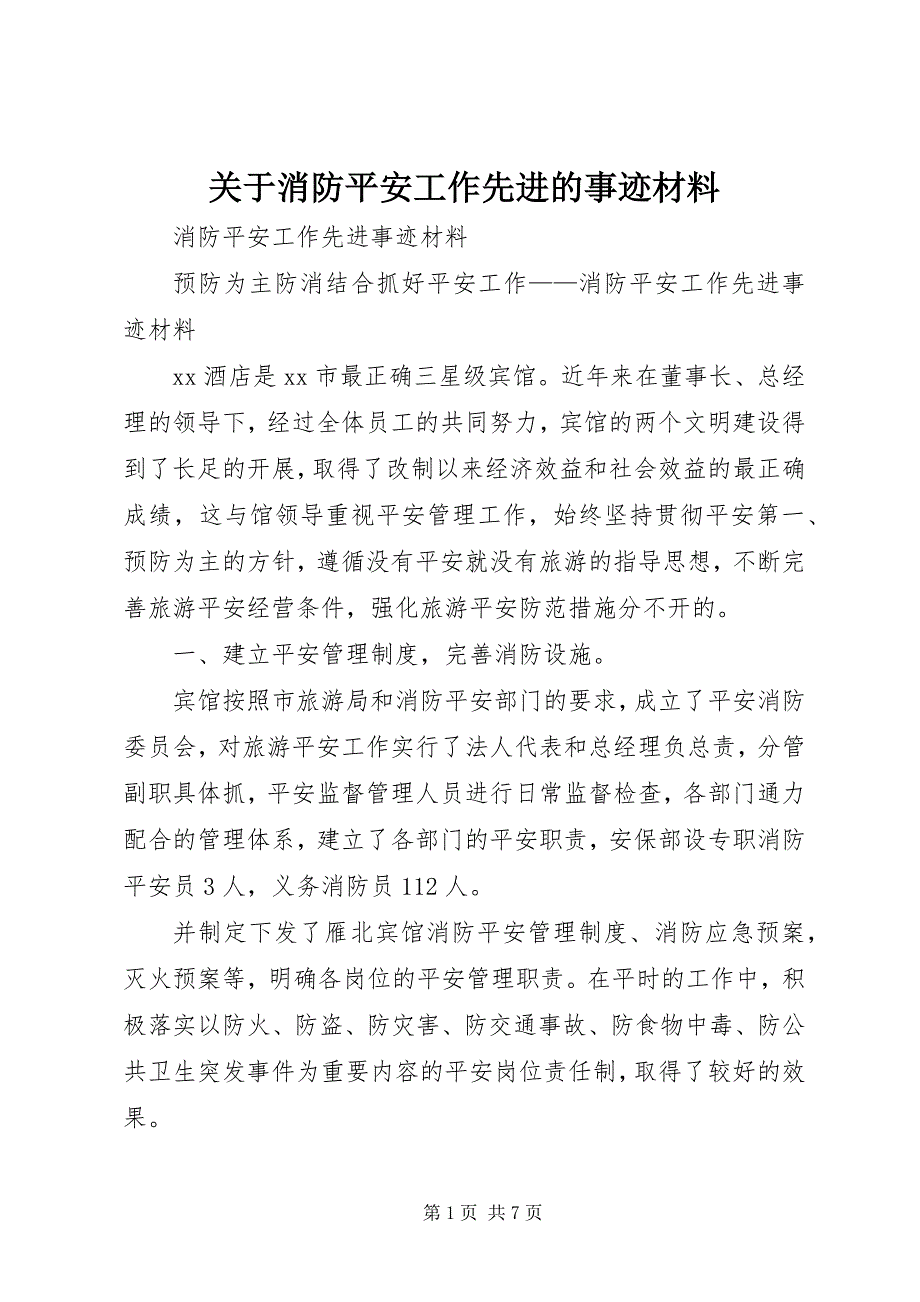 关于消防平安工作先进的事迹材料
消防平安工作先进事迹材料
预防为主防消结合抓好平安工作——消防平安工作先进事
迹材料
xx 酒店是 xx 市最正确三星级宾馆。近年来在董事长、总经
理的领导下，经过全体员工的共同努力，宾馆的两个文明建设得
到了长足的开展，取得了改制以来经济效益和社会效益的最正确
成绩，这与馆领导重视平安管理工作，始终坚持贯彻平安第一、
预防为主的方针，遵循没有平安就没有旅游的指导思想，不断完
善旅游平安经营条件，强化旅游平安防范措施分不开的。
一、建立平安管理制度，完善消防设施。
宾馆按照市旅游局和消防平安部门的要求，成立了平安消防
委员会，对旅游平安工作实行了法人代表和总经理负总责，分管
副职具体抓，平安监督管理人员进行日常监督检查，各部门通力
配合的管理体系，建立了各部门的平安职责，安保部设专职消防
平安员 3 人，义务消防员 112 人。
并制定下发了雁北宾馆消防平安管理制度、消防应急预案，
灭火预案等，明确各岗位的平安管理职责。在平时的工作中，积
极落实以防火、防盗、防灾害、防交通事故、防食物中毒、防公
共卫生突发事件为重要内容的平安岗位责任制，取得了较好的效
果。
第 1 页 共 7 页